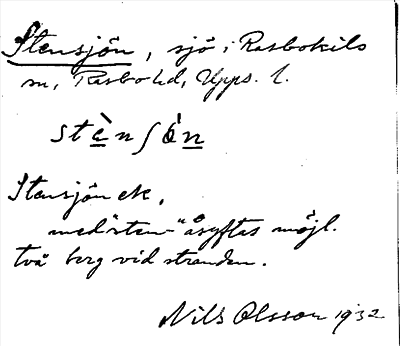 Stensjön, sjö i Rasbokils
sn, Rasbo hd, Upps. l.
stè̱nʃö̀ṉ
Stensjön ek.,
med "sten-" åsyftas möjl.
två berg vid stranden.
Nils Olsson 1932